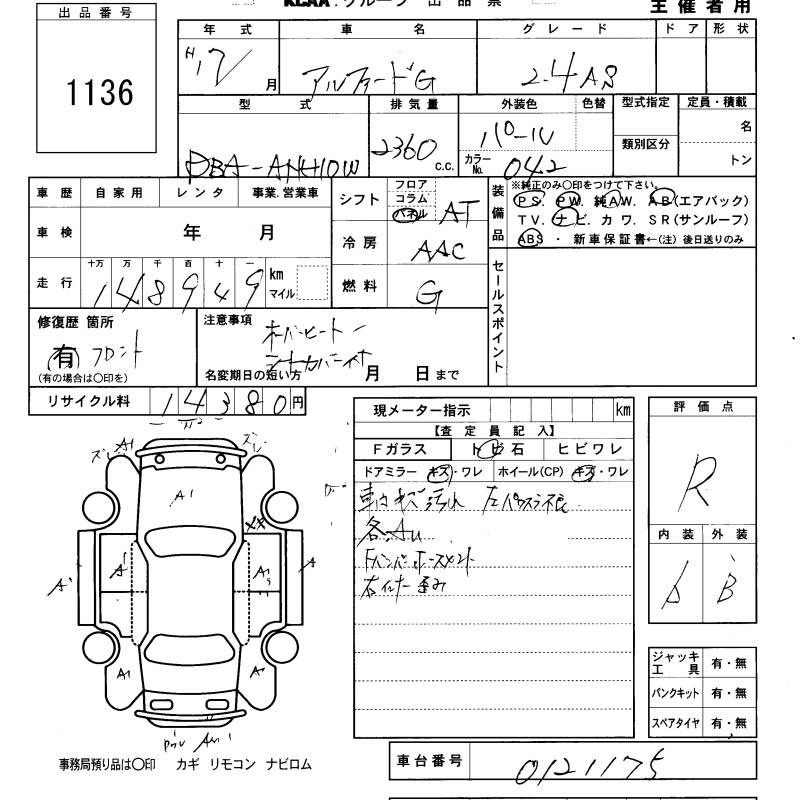 出品番号
1136
主催者用
年式 車名 グレード ドア 形状
H17 月 アルファードG 2.4AS
型式 排気量 外装色 色替 型式指定 定員・積載
DBA-ANH10W 2360 c.c. パール 名
カラーNo. 042 類別区分 トン
車歴 自家用 レンタ 事業.営業車
車検 年 月
走行 十万 万 千 百 十 一
148949 km マイル
シフト フロア コラム パネル AT
冷房 AAC
燃料 G
装備品 ※純正のみ〇印をつけて下さい。
PS. PW. 純AW. AB(エアバック)
TV. ナビ. カワ. SR(サンルーフ)
ABS ・ 新車保証書←(注) 後日送りのみ
セールスポイント
修復歴 箇所
有 フロント
(有の場合は〇印を)
注意事項
オーバーヒート
シートカバー付
名変期日の短い方 月 日まで
リサイクル料 14380円
現メーター指示 km
【査定員記入】
Fガラス トビ石 ヒビワレ
ドアミラー キズ・ワレ ホイール(CP) キズ・ワレ
車内キズ汚れ 左パワスラ不良
各AU
右インナー歪み
評価点
R
内装 外装
B
ジャッキ工具 有・無
パンクキット 有・無
スペアタイヤ 有・無
ズレ A1 ズレ
A1
XX
A1
A1 A1
事務局預り品は〇印 カギ リモコン ナビロム
車台番号 0121175